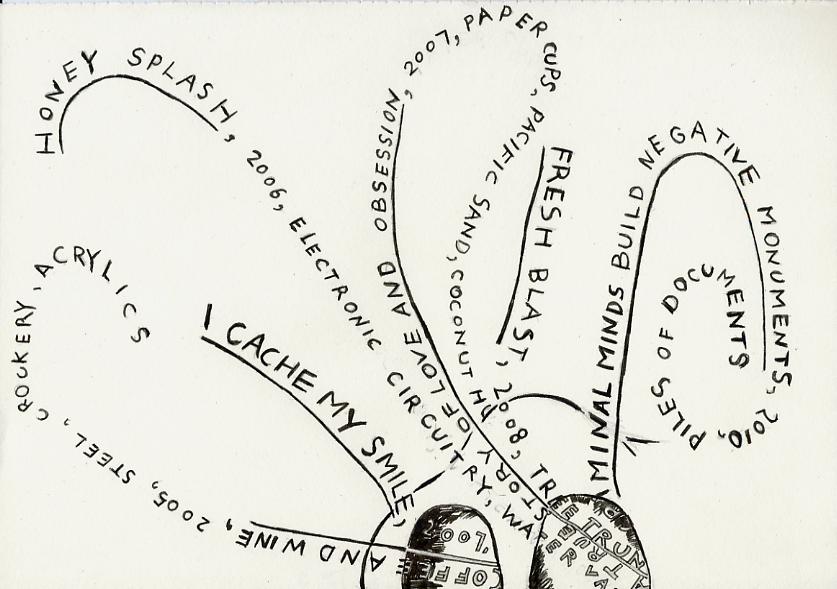 HONEY SPLASH, 2006, ELECTRONIC CIRCUITRY, WA
STORY OF LOVE AND OBSESSION, 2007, PAPER CUPS, PACIFIC SAND, COCONUT
FRESH BLAST, 2008, TREE TRUN
MINAL MINDS BUILD NEGATIVE MONUMENTS, 2010, PILES OF DOCUMENTS
I CACHE MY SMILE,
OFFEE AND WINE, 2005, STEEL, CROCKERY, ACRYLICS